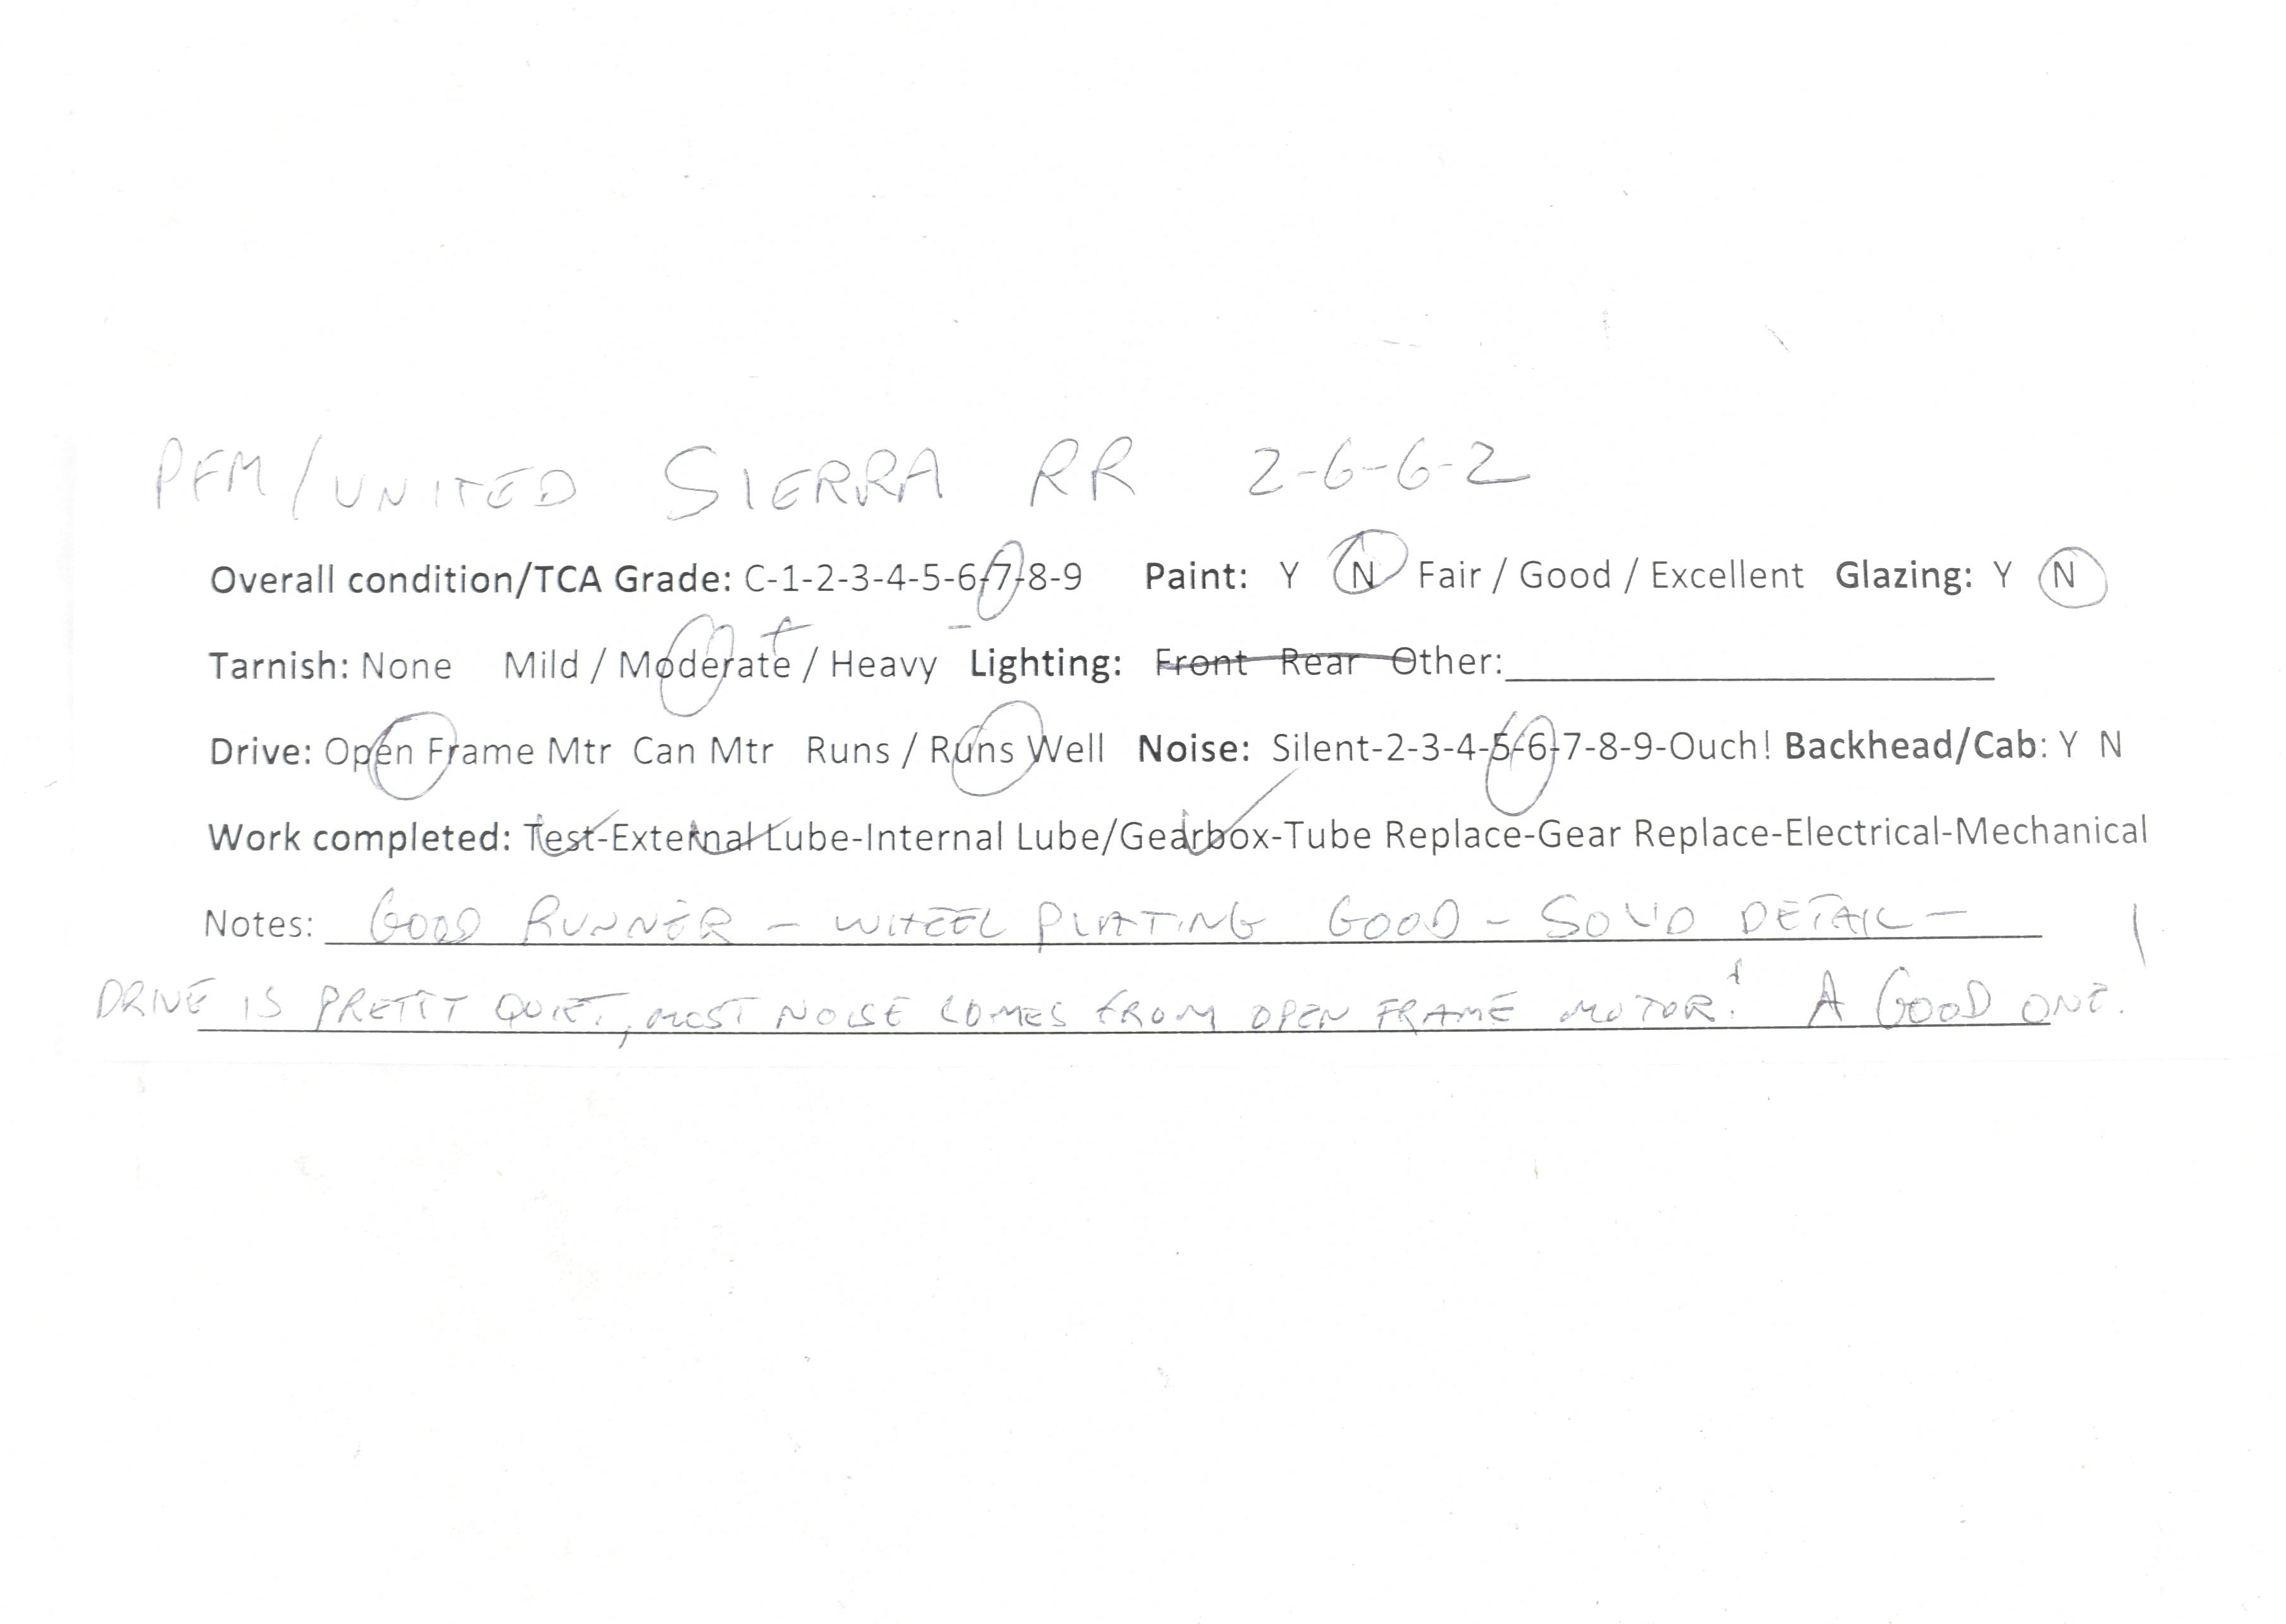 PFM/UNITED SIERRA RR 2-6-6-2
Overall condition/TCA Grade: C-1-2-3-4-5-6-7-8-9 Paint: Y N Fair / Good / Excellent Glazing: Y N
Tarnish: None Mild / Moderate + / Heavy Lighting: Front Rear Other:
Drive: Open Frame Mtr Can Mtr Runs / Runs Well Noise: Silent-2-3-4-5-6-7-8-9-Ouch! Backhead/Cab: Y N
Work completed: Test-External Lube-Internal Lube/Gearbox-Tube Replace-Gear Replace-Electrical-Mechanical
Notes: GOOD RUNNER - WHEEL PLATING GOOD - SOLID DETAIL -
DRIVE IS PRETTY QUIET, MOST NOISE COMES FROM OPEN FRAME MOTOR! A GOOD ONE.